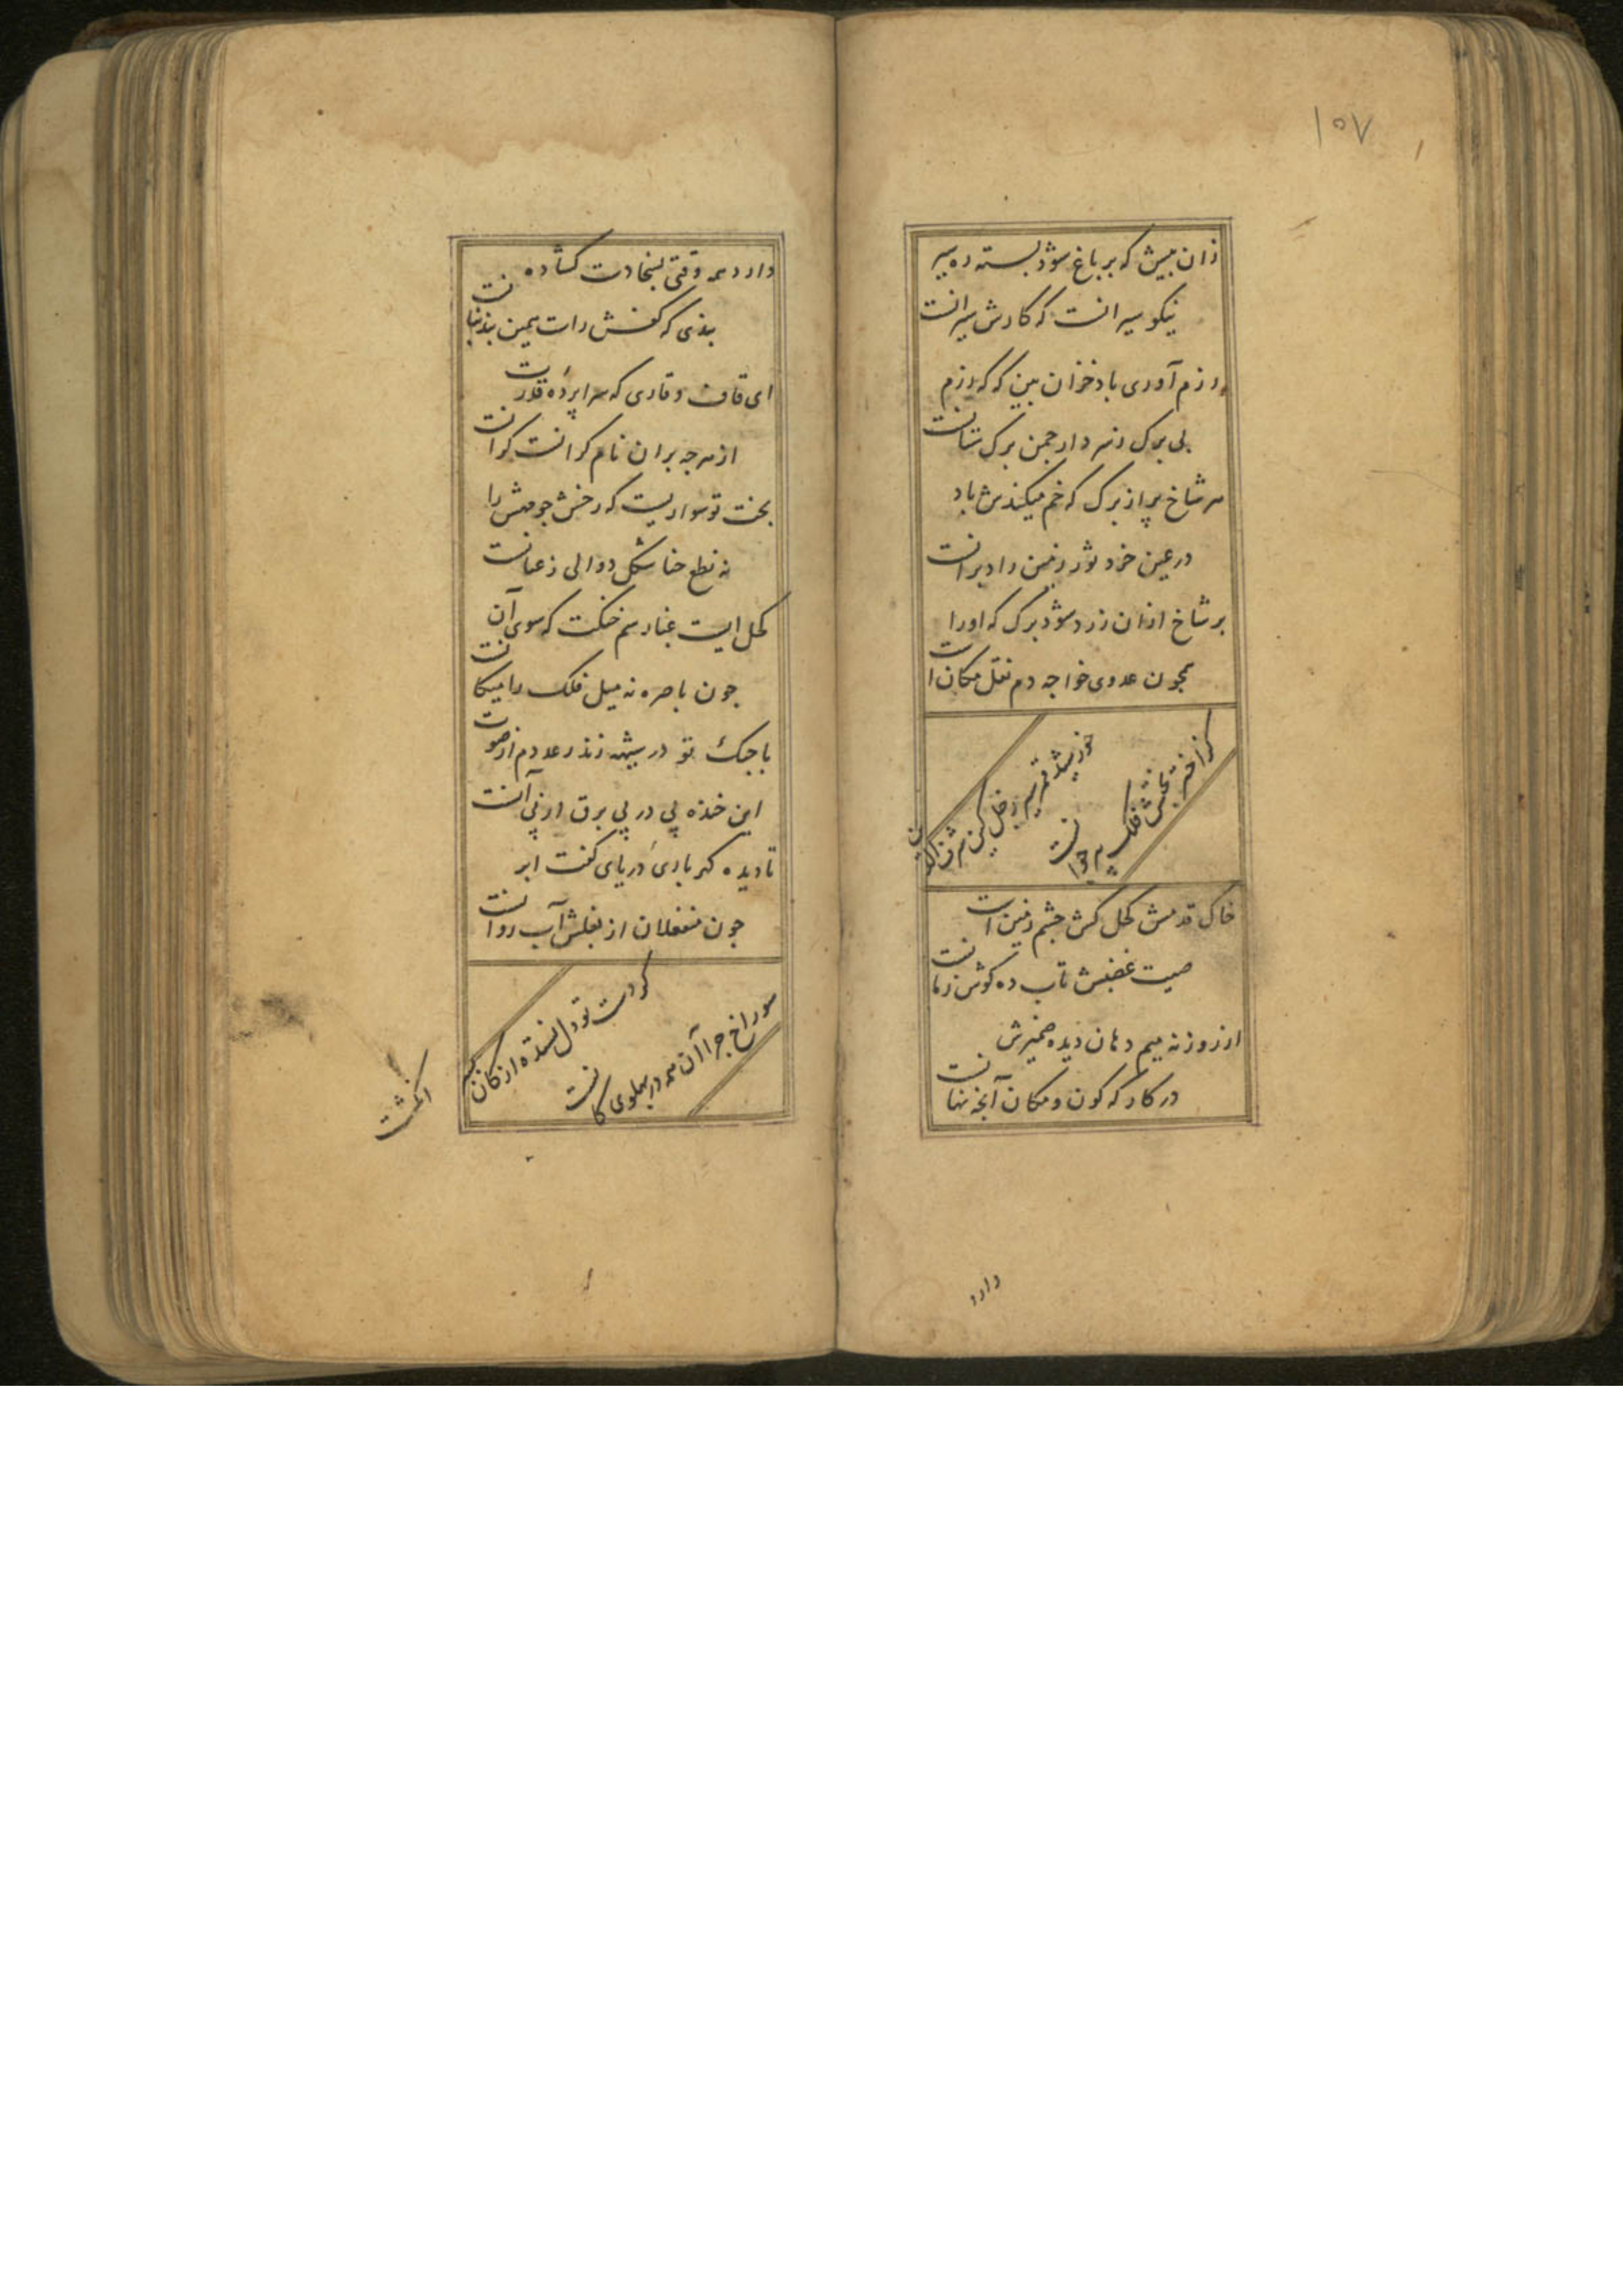 ۱۰۷
زان بیش که بر باغ شود بسته ره سیر
نیکو سیر انست که کارش سیرانست
رزم آوری باد خزان بین که که رزم
بی برک زند دار جمن برک ستانست
هر شاخ پر از برک که خم میکندش باد
در عین خرد ثور زمین را دبرانست
بر شاخ ازان زرد شود برک که او را
همچون عدوی خواجه دم نقل مکان است
خورشید
کز اختر بختش فلک پیر جوانست
خاک قدمش کحل کش جشم زمین است
صیت غضبش تاب ده کوش زمانست
از روزنه میم دهان دیده ضمیرش
در کارکه کون و مکان آنجه نهانست
دارد
دارد همه وقتی بسخادت کشاده
بندی که کفش راست همین بند بنانست
ای قاف وقاری که سراپرده قدرت
از هر جه بران نام کرانست کرانست
بخت تو سواریست که رخش جو مهش را
نه نطع خناشکل دوالی ز عنانست
کحل ایست غبار سم خنکت که سوی آن
جون باصره نه میل فلک را میکانست
با جنک تو در بیشه زند رعد دم از صوت
این خنده پی در پی برق از پی آنست
تا دیده کهر باری دریای کفت ابر
جون منفعلان از بغلش آب روانست
کر دست تو دل نستده از کان
سوراخ جرا آن همه در پهلوی کانست
انکشت